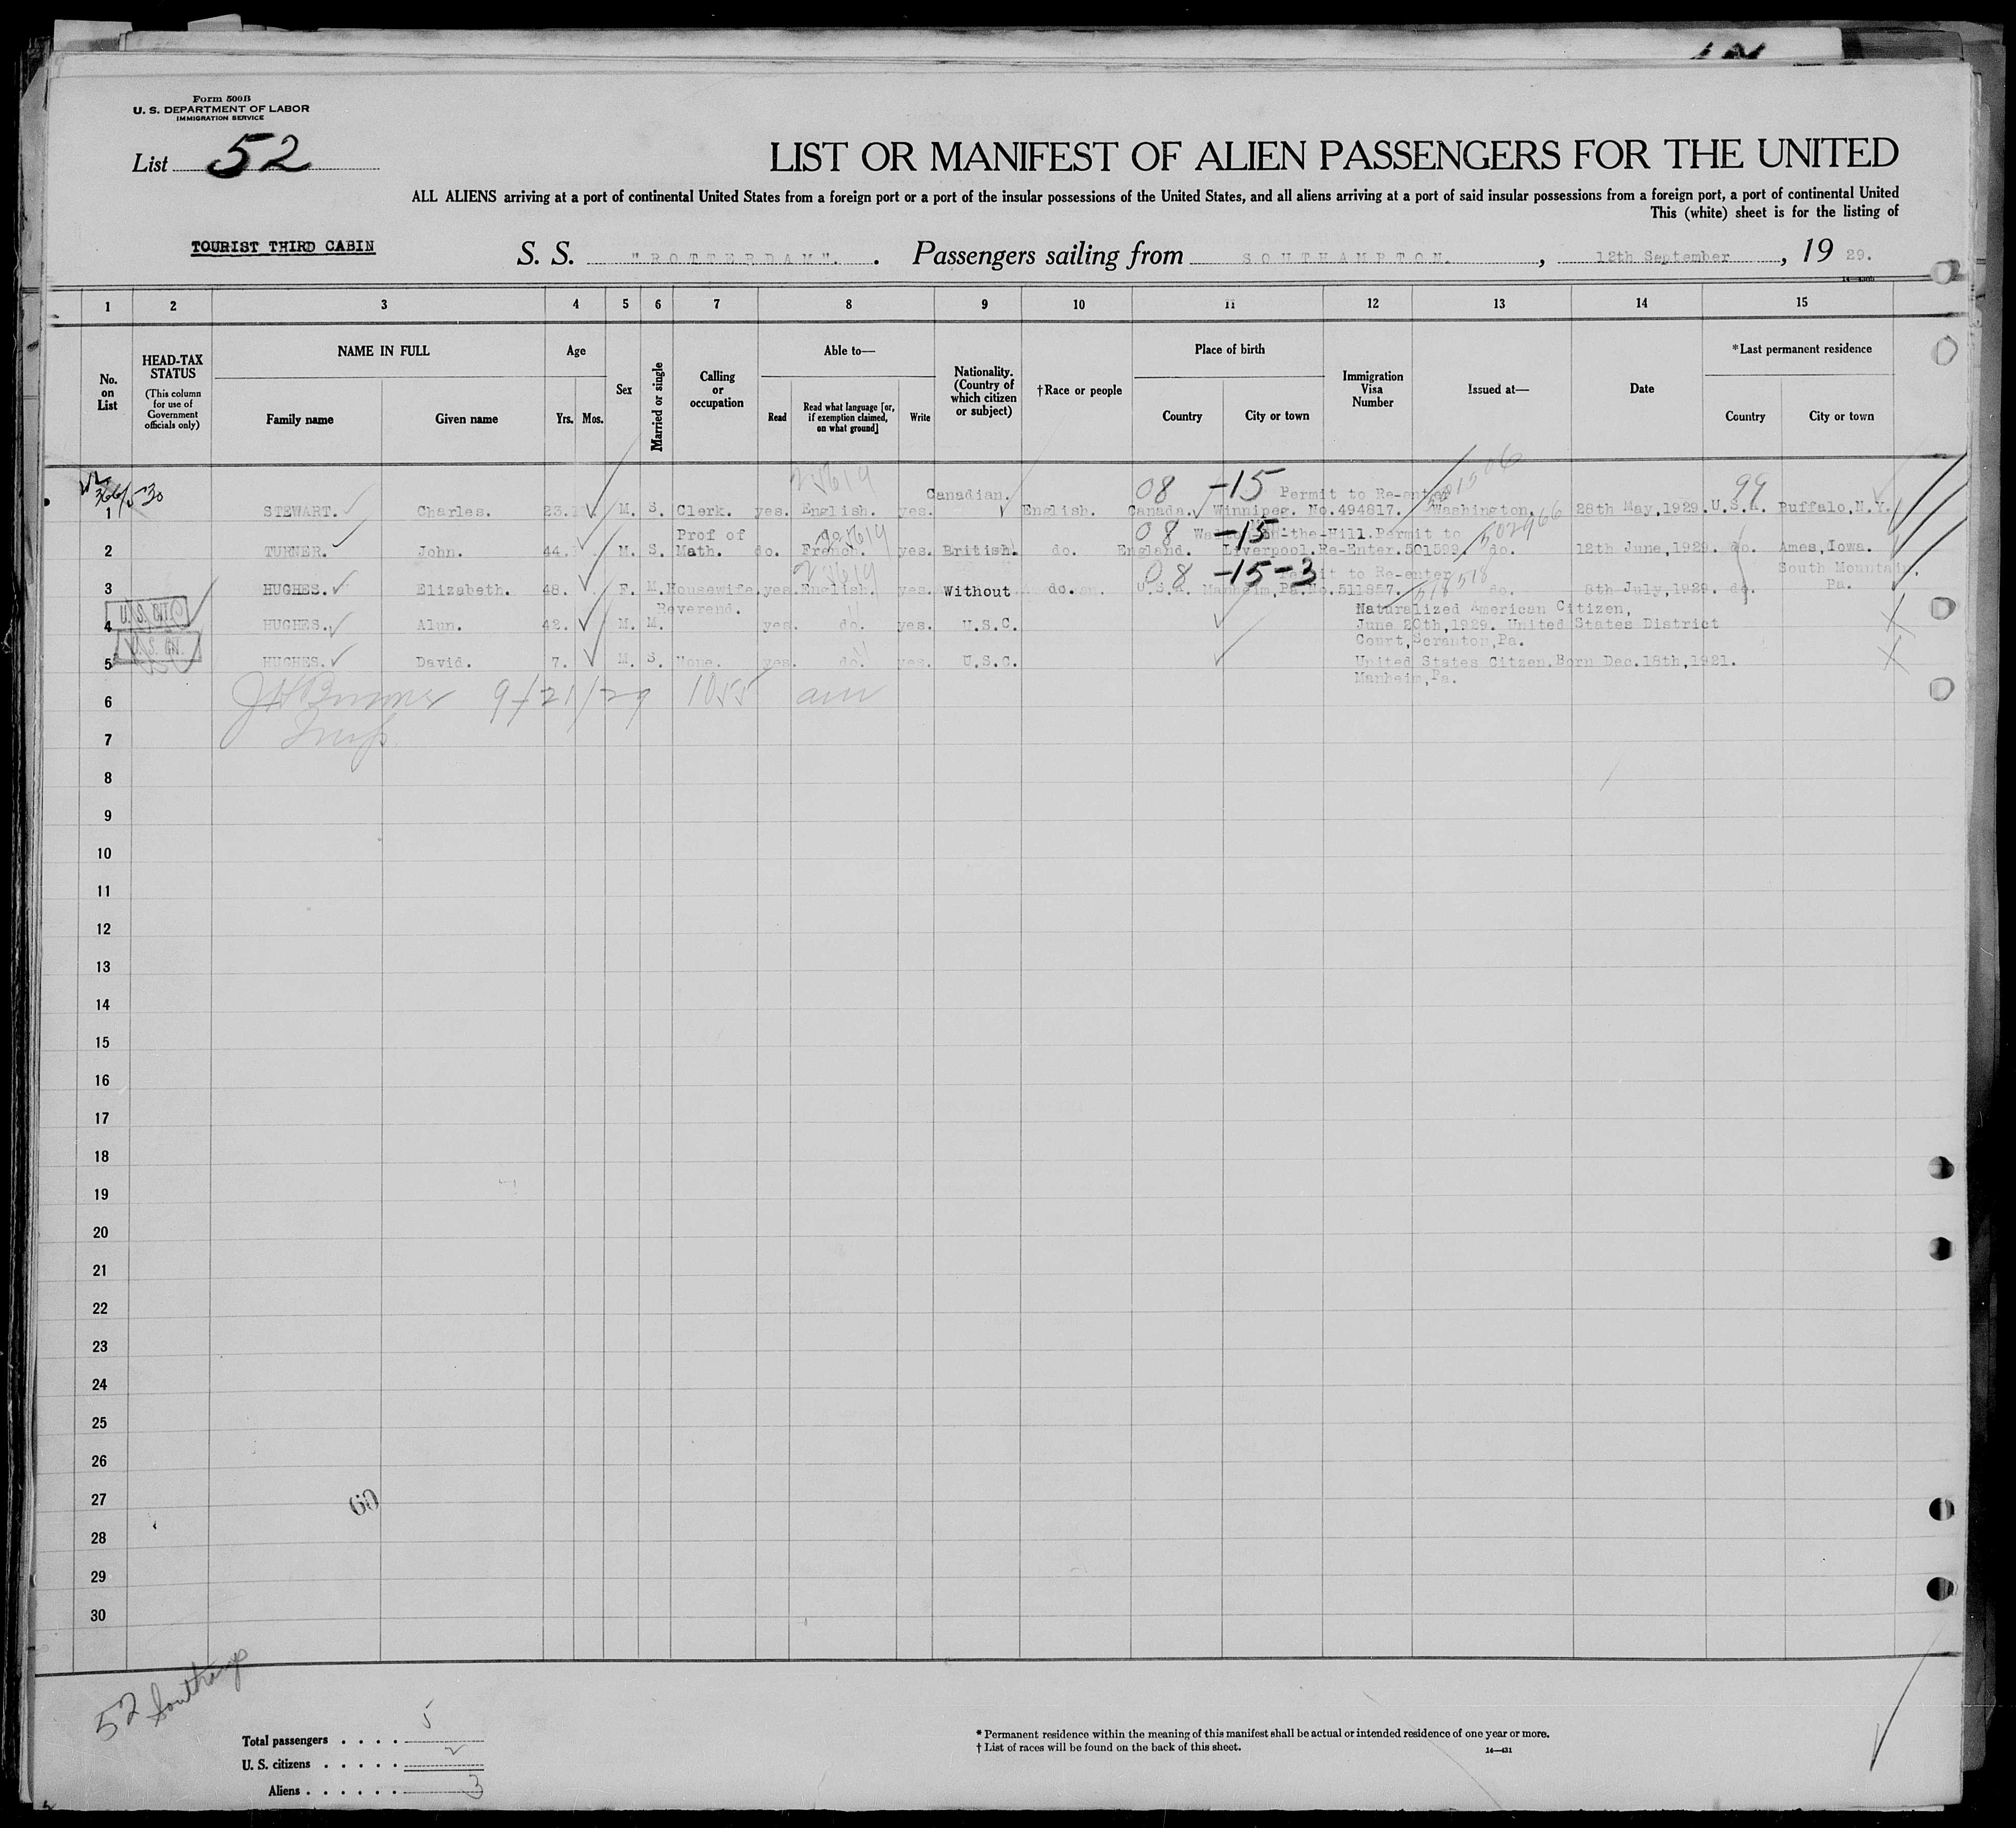 Form 500B
U. S. DEPARTMENT OF LABOR
IMMIGRATION SERVICE
List 52
LIST OR MANIFEST OF ALIEN PASSENGERS FOR THE UNITED
ALL ALIENS arriving at a port of continental United States from a foreign port or a port of the insular possessions of the United States, and all aliens arriving at a port of said insular possessions from a foreign port, a port of continental United
This (white) sheet is for the listing of
TOURIST THIRD CABIN
S. S. "ROTTERDAM". . Passengers sailing from SOUTHAMPTON. , 12th September , 19 29.
1 2 3 4 5 6 7 8 9 10 11 12 13 14 15
No. on List
HEAD-TAX STATUS
(This column for use of Government officials only)
NAME IN FULL
Family name Given name
Age
Yrs. Mos.
Sex
Married or single
Calling or occupation
Able to—
Read
Read what language [or, if exemption claimed, on what ground]
Write
Nationality. (Country of which citizen or subject)
†Race or people
Place of birth
Country City or town
Immigration Visa Number
Issued at—
Date
*Last permanent residence
Country City or town
08 -15 99
Canadian. Permit to Re-enter
1 STEWART. Charles. 23. M. S. Clerk. yes. English. yes. English. Canada. Winnipeg. No.494817. Washington. 28th May,1929. U.S.A. Buffalo,N.Y.
Prof of 08 -15 -the-Hill. Permit to 502966
2 TURNER. John. 44. M. S. Math. do. French. yes. British. do. England. Liverpool. Re-Enter.501599. do. 12th June,1929. do. Ames,Iowa.
08 -15-3 Permit to Re-enter South Mountain.
3 HUGHES. Elizabeth. 48. F. M. Housewife. yes. English. yes. Without do. U.S.A. Manheim,Pa. No.511857. do. 8th July,1929. do. Pa.
U.S. CIT.
Reverend. Naturalized American Citizen,
4 HUGHES. Alun. 42. M. M. yes. do. yes. U.S.C. June 20th,1929. United States District
Court,Scranton,Pa.
U.S. CIT.
5 HUGHES. David. 7. M. S. None. yes. do. yes. U.S.C. United States Citzen. Born Dec.18th,1921.
Manheim,Pa.
6 9/21/29 1055 am
7 Insp.
8
9
10
11
12
13
14
15
16
17
18
19
20
21
22
23
24
25
26
27
60
28
29
30
52 Southamp
Total passengers . . . . 5
U. S. citizens . . . . . 2
Aliens . . . . . . 3
* Permanent residence within the meaning of this manifest shall be actual or intended residence of one year or more.
† List of races will be found on the back of this sheet.
14—431